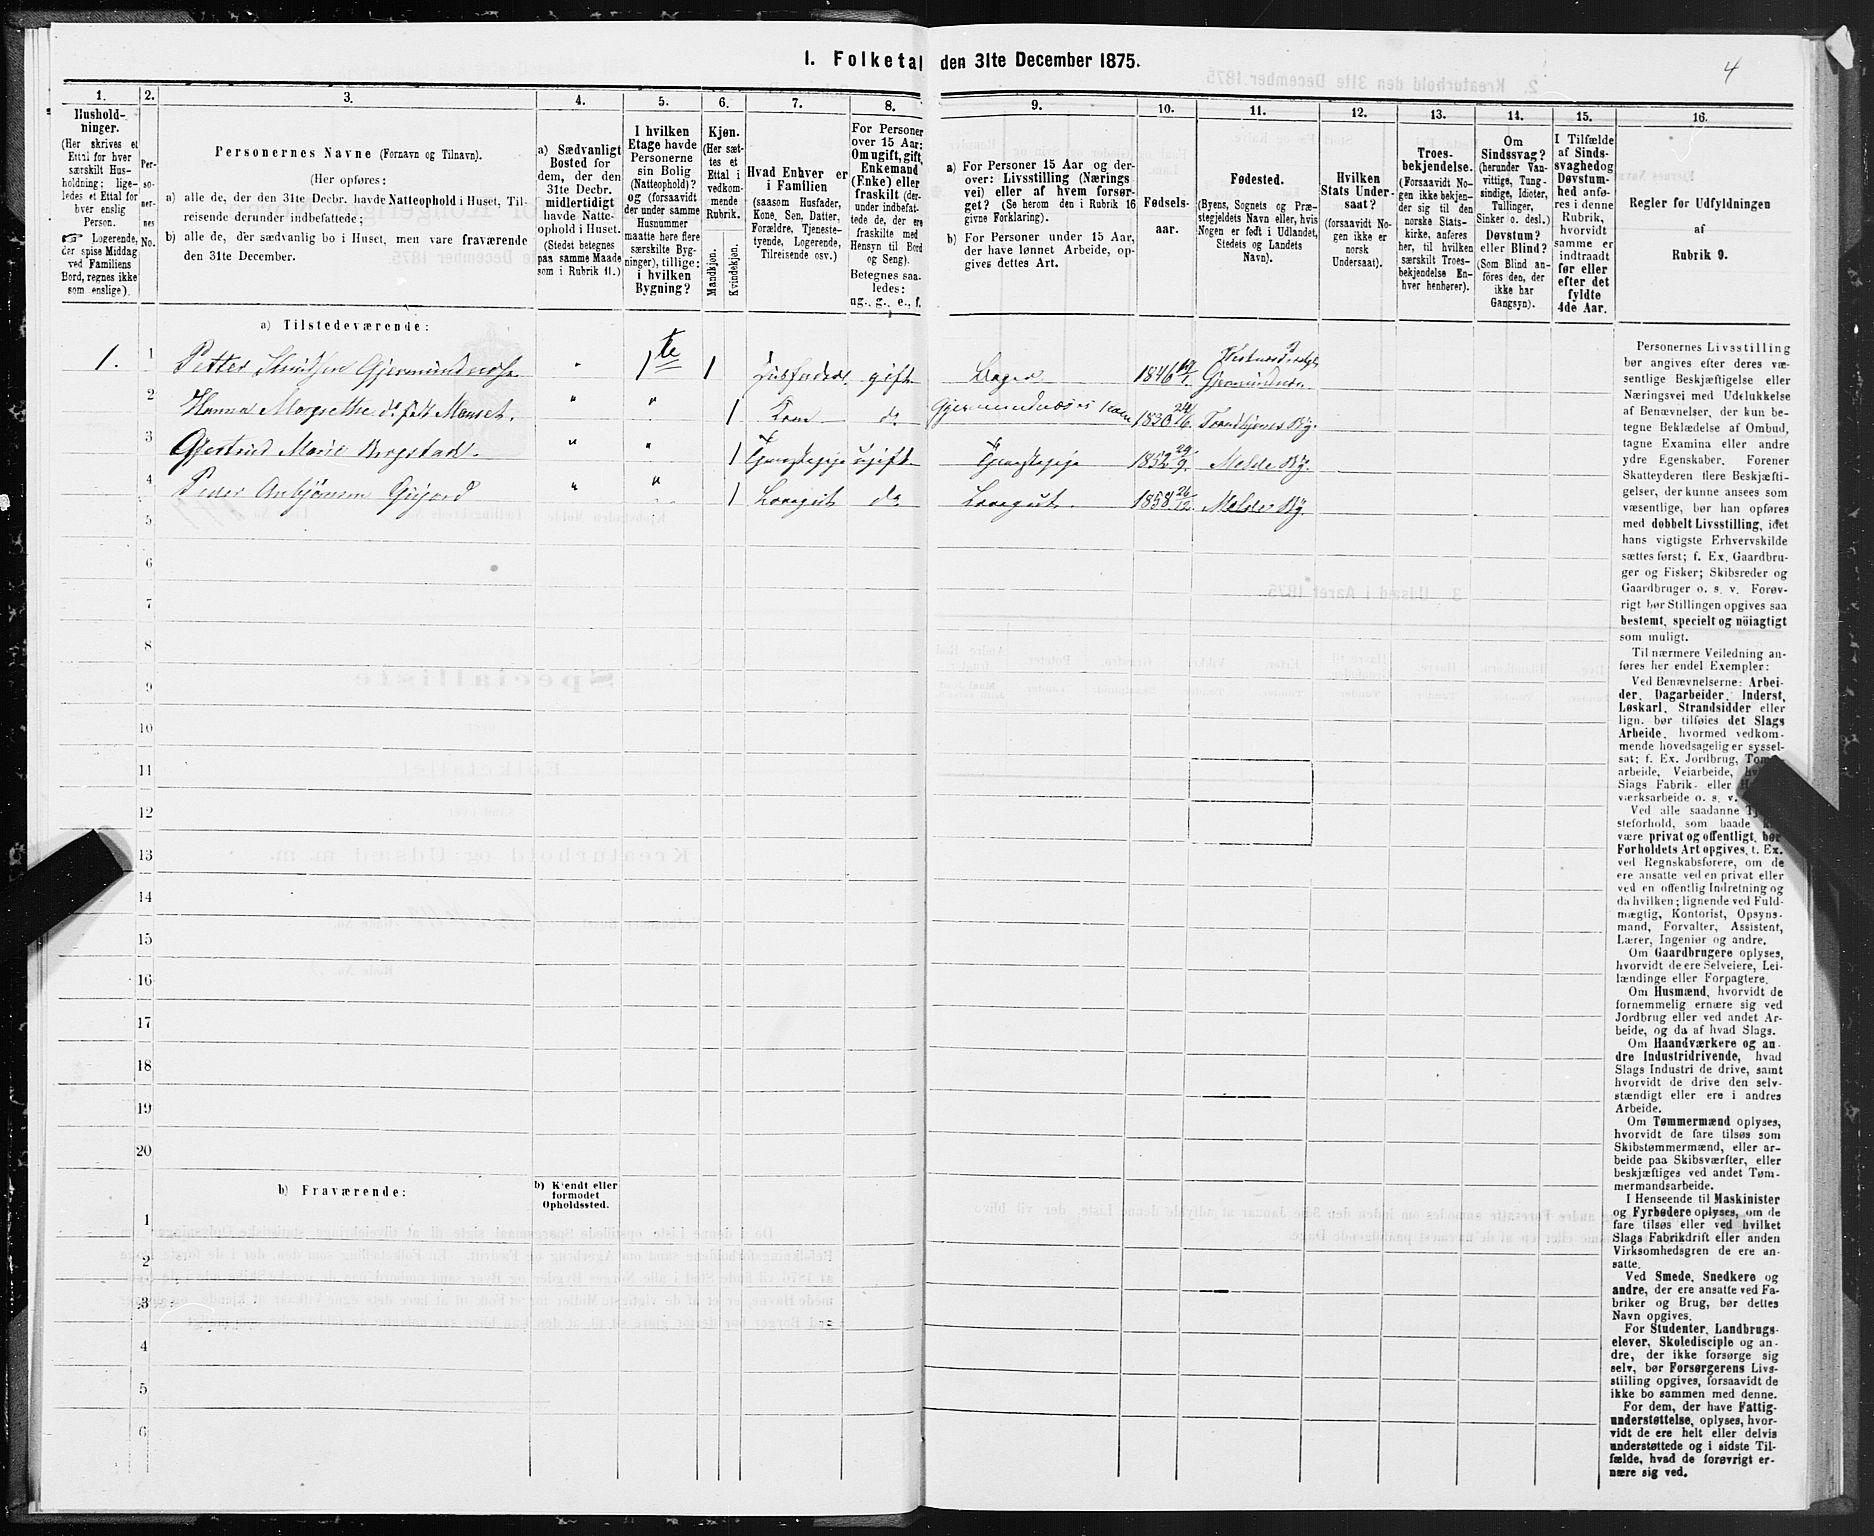 I. Folketal den 31te December 1875.
4
1.
Hushold-
ninger.
(Her skrives et
Ettal for hver
særskilt Hus-
holdning; lige-
ledes et Ettal for
hver enslig
Person.
☞ Logerende,
der spise Middag
ved Familiens
Bord, regnes ikke
som enslige).
2.
Per-
so-
ner-
nes
No.
3.
Personernes Navne (Fornavn og Tilnavn).
(Her opføres:
a) alle de, der den 31te Decbr. havde Natteophold i Huset, Til-
reisende derunder indbefattede;
b) alle de, der sædvanlig bo i Huset, men vare fraværende
den 31te December.
4.
a) Sædvanligt
Bosted for
dem, der den
31te Decbr.
midlertidigt
havde Natte-
ophold i Huset.
(Stedet betegnes
paa samme Maade
som i Rubrik 11.)
5.
I hvilken
Etage havde
Personerne
sin Bolig
(Natteophold)?
og (forsaavidt
der under samme
Husnummer
maatte høre flere
særskilte Byg-
ninger), tillige:
i hvilken
Bygning?
6.
Kjøn.
(Her sæt-
tes et
Ettal i
vedkom-
mende
Rubrik.
Mandkjøn.
Kvindekjøn.
7.
Hvad Enhver er
i Familien
(saasom Husfader,
Kone, Søn, Datter,
Forældre, Tjeneste-
tyende, Logerende,
Tilreisende osv.)
8.
For Personer
over 15 Aar:
Om ugift, gift,
Enkemand
(Enke) eller
fraskilt (der-
under indbefat-
tede de, der ere
fraskilte med
Hensyn til Bord
og Seng).
Betegnes saa-
ledes:
ug., g., e., f.
9.
a) For Personer 15 Aar og der-
over: Livsstilling (Nærings
vei) eller af hvem forsør-
get? (Se herom den i Rubrik 16
givne Forklaring).
b) For Personer under 15 Aar,
der have lønnet Arbeide, op-
gives dettes Art.
10.
Fødsels-
aar.
11.
Fødested.
(Byens, Sognets og Præ-
stegjeldets Navn eller, hvis
Nogen er født i Udlandet,
Stedets og Landets
Navn).
12.
Hvilken
Stats Under-
saat?
(forsaavidt No-
gen ikke er
norsk
Undersaat).
13.
Troes-
bekjendelse.
(Forsaavidt No-
gen ikke bekjen-
der sig til den
norske Stats-
kirke, anføres
her, til hvilken
særskilt Troes-
bekjendelse En-
hver henhører).
14.
Om
Sindssvag?
(herunder Van-
vittige, Tung-
sindige, Idioter,
Tullinger,
Sinker o. desl.)
Døvstum?
eller Blind?
(Som Blind an-
føres den, der
ikke har
Gangsyn).
15.
I Tilfælde
af Sinds-
svaghed og
Døvstum-
hed anfø-
res i denne
Rubrik,
hvorvidt
samme er
indtraadt
før eller
efter det
fyldte
4de Aar.
16.
Regler for Udfyldningen
af
Rubrik 9.
a) Tilstedeværende:
1. 1 Petter Knudsen 1te 1 gift 1846 Gjermundnæs
2 Hanna " " 1 Kone do 1830 24/6 Trondhjems By.
3 Gjertrud Marie " " 1 ugift 1852 29/9 Molde By.
4 Peder " " 1 do 1858 26/12 Molde By.
5
6
7
8
9
10
11
12
13
14
15
16
17
18
19
20
b) Fraværende:
b) Kjendt eller
formodet
Opholdssted.
1
2
3
4
5
6
Personernes Livsstilling
bør angives efter deres væ-
sentlige Beskjæftigelse eller
Næringsvei med Udelukkelse
af Benævnelser, der kun be-
tegne Beklædelse af Ombud,
tagne Examina eller andre
ydre Egenskaber. Forener
Skatteyderen flere Beskjæfti-
gelser, der kunne ansees som
væsentlige, bør han opføres
med dobbelt Livsstilling, idet
hans vigtigste Erhvervskilde
sættes først; f. Ex. Gaardbru-
ger og Fisker; Skibsreder og
Gaardbruger o. s. v. Forøv-
rigt bør Stillingen opgives saa
bestemt, specielt og nøiagtigt
som muligt.
Til nærmere Veiledning an-
føres her endel Exempler:
Ved Benævnelserne: Arbei-
der, Dagarbeider, Inderst,
Løskarl, Strandsidder eller
lign. bør tilføies det Slags
Arbeide, hvormed vedkom-
mende hovedsagelig er syssel-
sat; f. Ex. Jordbrug,
arbeide, Veiarbeide,
Slags Fabrik- eller
værksarbeide o. s. v.
Ved alle saadanne
steforhold, som baade
være privat og offentligt, bør
Forholdets Art opgives, f. Ex.
ved Regnskabsførere, om de
ere ansatte ved en privat eller
ved en offentlig Indretning og
da hvilken; lignende ved Fuld-
mægtig, Kontorist, Opsyns-
mand, Forvalter, Assistent,
Lærer, Ingeniør og andre.
Om Gaardbrugere oplyses,
hvorvidt de ere Selveiere, Lei-
lændinge eller Forpagtere.
Om Husmænd, hvorvidt de
fornemmelig ernære sig ved
Jordbrug eller ved andet Ar-
beide, og da af hvad Slags.
Om Haandværkere og an-
dre Industridrivende, hvad
Slags Industri de drive, samt
hvorvidt de drive den selv-
stændigt eller ere i andres
Arbeide.
Om Tømmermænd oplyses,
hvorvidt de fare tilsøs som
Skibstømmermænd, eller ar-
beide paa Skibsværfter, eller
beskjæftiges ved andet Tøm-
mermandsarbeide.
I Henseende til Maskinister
og Fyrbødere oplyses, om de
fare tilsøs eller ved hvilket
Slags Fabrikdrift eller anden
Virksomhedsgren de ere an-
satte.
Ved Smede, Snedkere og
andre, der ere ansatte ved Fa-
briker og Brug, bør dettes
Navn opgives.
For Studenter, Landbrugs-
elever, Skoledisciple og an-
dre, der ikke forsørge sig
selv, bør Forsørgerens Livs-
stilling opgives, forsaavidt de
ikke bo sammen med denne.
For dem, der have Fattig-
understøttelse, oplyses, hvor-
vidt de ere helt eller delvis
understøttede og i sidste Til-
fælde, hvad de forøvrigt er-
nære sig ved.